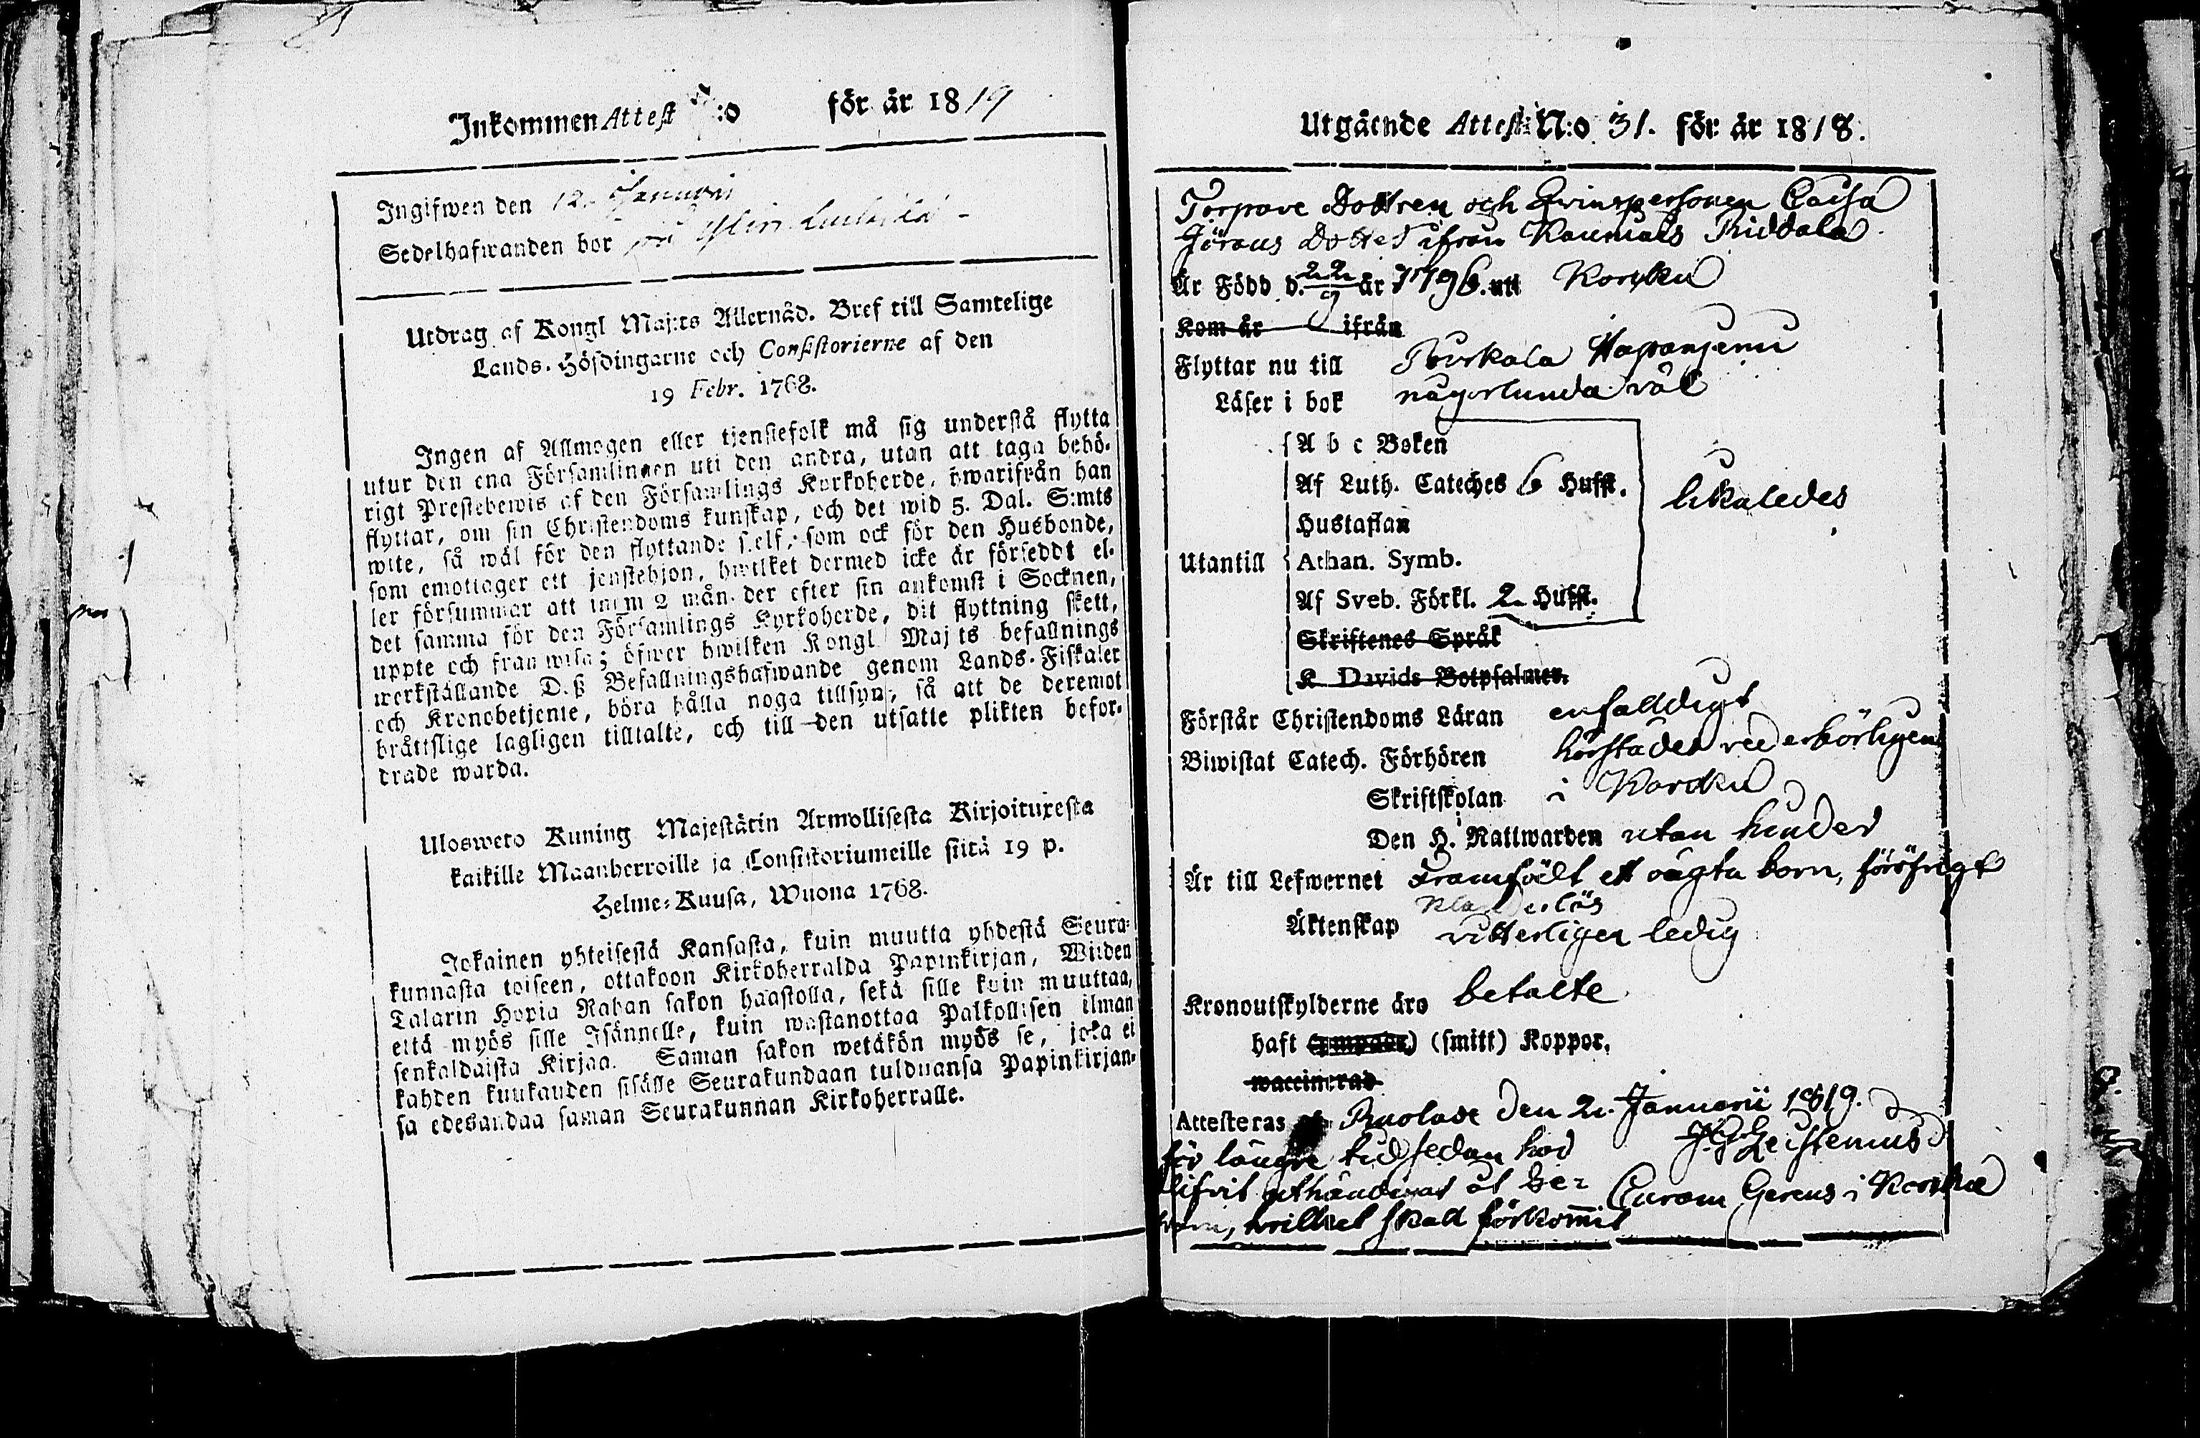 Inkommen Attest N:o för år 1819
Ingifwen den 12. Januari
Sedelhafwanden bor på
Utdrag af Kongl Maj:ts Allernåd. Bref till Samtelige
Lands-Höfdingarne och Consistorierne af den
19 Febr. 1768.
Ingen af Allmogen eller tjenstefolk må sig understå flytta
utur den ena Församlingen uti den andra, utan att taga behö-
rigt Prestebewis af den Församlings Kyrkoherde, hwarifrån han
flyttar, om sin Christendoms kunskap, och det wid 5. Dal. S:mts
wite, så wäl för den flyttande sielf, som ock för den Husbonde,
som emottager ett jenstehjon, hwilket dermed icke är försedt el-
ler försummar att inom 2 mån-der efter sin ankomst i Socknen,
det samma för den Församlings Kyrkoherde, dit flyttning skett,
uppte och fram wisa; öfwer hwilken Kongl Maj ts befallnings
werkställande D.ß Befallningshafwande genom Lands-Fiskaler
och Kronobetjente, böra hålla noga tillsyn, så att de deremot
bråttslige lagligen tilltalte, och till den utsatte plikten befor-
drade warda.
Ulosweto Kuning Majestätin Armollisesta Kirjoituxesta
kaikille Maanherroille ja Consistoriumeille siitä 19 p.
Helme-Kuusa, Wuona 1768.
Jokainen yhteisestä Kansasta, kuin muutta yhdestä Seura-
kunnasta toiseen, ottakoon Kirkoherralda Papinkirjan, Wiiden
Talarin Hopia Rahan sakon haastolla, sekä sille kuin muuttaa,
että myös sille Isännelle, kuin wastanottaa Palkollisen ilman
senkaldaista Kirjaa. Saman sakon wetäkön myös se, joka ei
kahden kuukauden sisälle Seurakundaan tulduansa Papinkirjan-
sa edesandaa saman Seurakunnan Kirkoherralle.
Utgående Attest N:o 31. för år 1818.
Torpare Dottren och Qvinspersonen Caisa
Jörans Dotter ifrån Raumals Riddala
Är Född d. 22/9 år 1796. uti Korpku
Kom år ifrån
Flyttar nu till Pirkala Haapanjemi
Läser i bok någorlunda väl
Utantill
A b c Boken
Af Luth. Cateches 6 Hufst.
Hustaflan
Athan. Symb.
Af Sveb. Förkl. 2 Hufst.
Skriftenes Språk
K Davids Botpsalmer.
likaledes
Förstår Christendoms Läran enfalldigt
Biwistat Catech. Förhören härstädes vederbörligen
Skriftskolan i Karcku
Den H. Nattwarden utan hinder
Är till Lefwernet Framfödt et oägta barn, föröfrigt
klanderlös
Äktenskap vitterligen ledig
Kronoutskylderne äro betalte
haft (ympade) (smitt) Koppor.
waccinerad
Attesteras af Ruolax den 2. Januarii 1819.
för längre tid sedan har
blifvit uthändigat åt be-
hvilket skall förkom̄it
Curam Gerens i Karcku